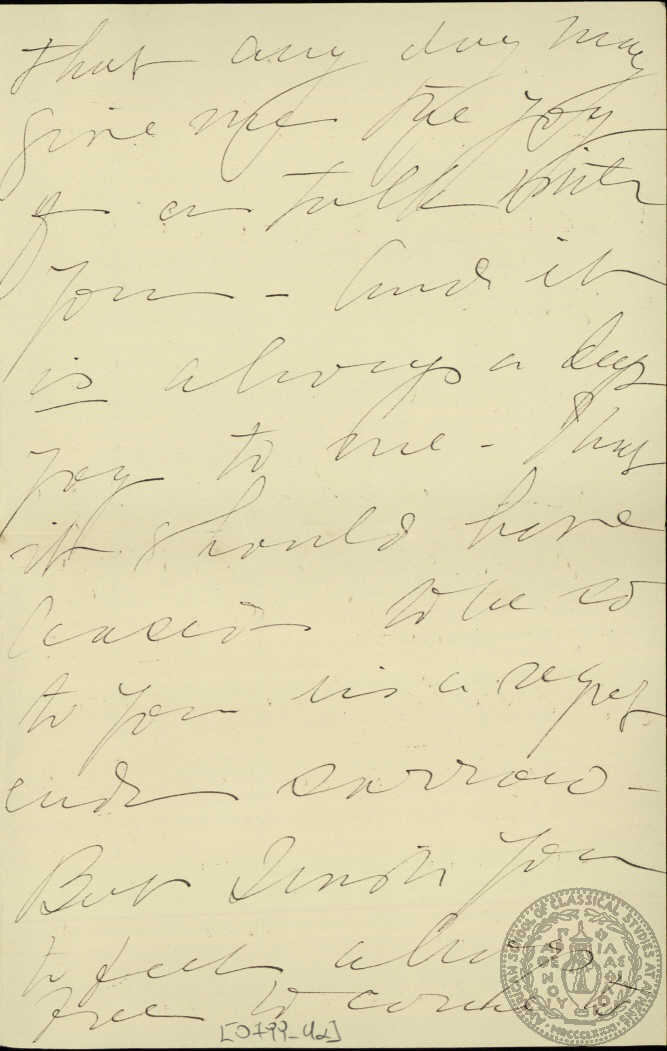 that any day may
give me the joy
of a talk with
you - And it
is always a deep
joy to me - That
it should have
ceased to be so
to you is a regret
and sorrow -
But I wish you
to feel always
free to come
[0799-4d]
AMERICAN SCHOOL OF CLASSICAL STUDIES AT ATHENS
ΠΑΡΘΕΝΟΥ ΦΙΛΑΣ
MDCCCLXXXI